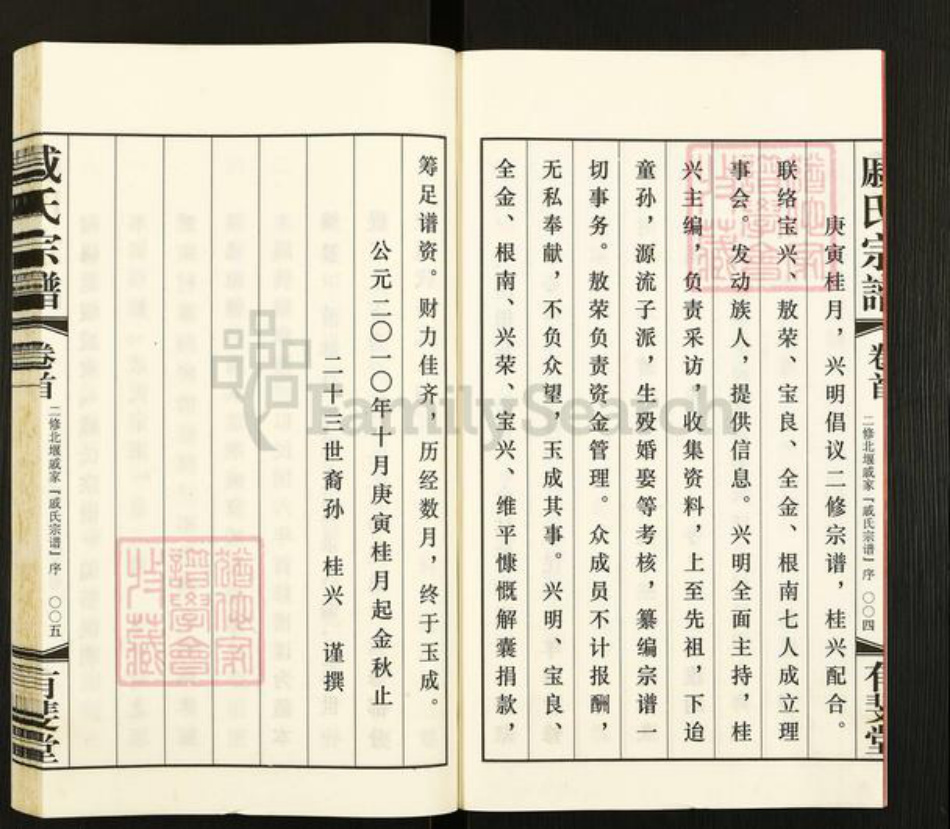 戚氏宗谱
卷首
二修北堰戚家『戚氏宗谱』序
〇〇四
有斐堂
庚寅桂月，兴明倡议二修宗谱，桂兴配合。
联络宝兴、敖荣、宝良、全金、根南七人成立理
事会。发动族人，提供信息。兴明全面主持，桂
兴主编，负责采访，收集资料，上至先祖，下迨
童孙，源流子派，生殁婚娶等考核，纂编宗谱一
切事务。敖荣负责资金管理。众成员不计报酬，
无私奉献，不负众望，玉成其事。兴明、宝良、
全金、根南、兴荣、宝兴、维平慷慨解囊捐款，
筹足谱资。财力佳齐，历经数月，终于玉成。
公元二〇一〇年十月庚寅桂月起金秋止
二十三世裔孙 桂兴 谨撰
戚氏宗谱
卷首
二修北堰戚家『戚氏宗谱』序
〇〇五
有斐堂
FamilySearch